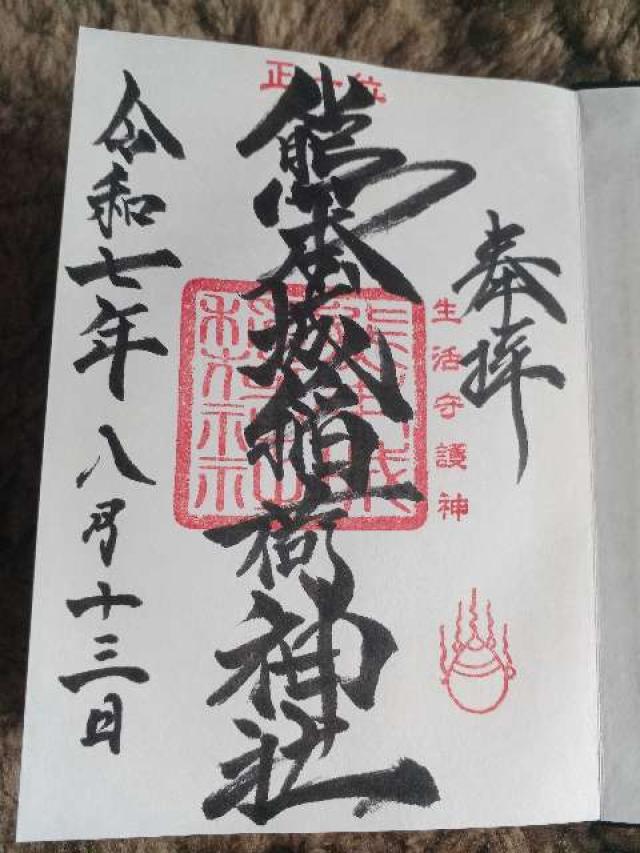 奉拝
生活守護神
正一位
熊本城稲荷神社
令和七年八月十三日